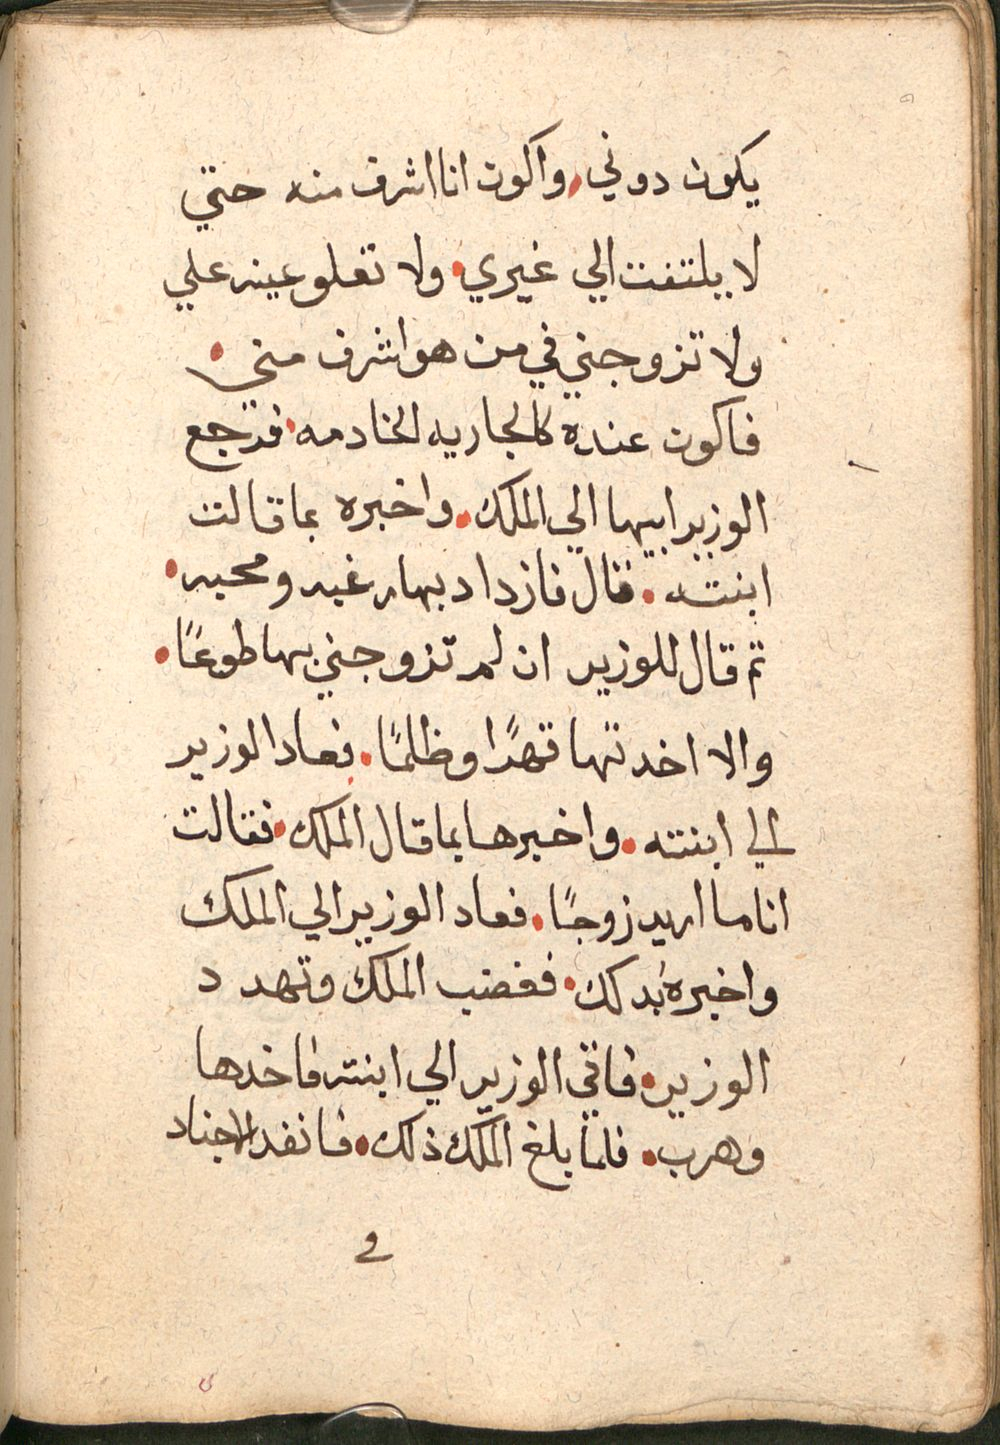 يكون دوني. واكون انا اشرف منه حتي
لا يلتفت الي غيري. ولا تعلو عينه علي
ولا تزوجني في من هو اشرف مني.
فاكون عنده كالجاريه الخادمه. فرجع
الوزير ابيها الي الملك. واخبره بما قالت
ابنته. قال فازداد بها رغبه ومحبه.
ثم قال للوزير ان لم تزوجني بها طوعًا.
والا اخدتها قهرًا وظلمًا. فعاد الوزير
الي ابنته. واخبرها بما قال الملك. فقالت
انا ما اريد زوجًا. فعاد الوزير الي الملك
واخبره بدلك. فغضب الملك وتهدد
الوزير. فاتي الوزير الي ابنته فاخدها
وهرب. فلما بلغ الملك ذلك. فانفد الاجناد